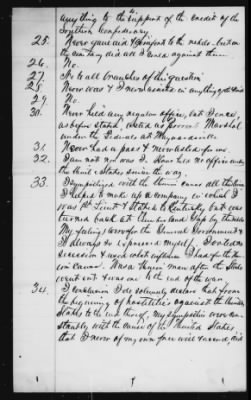 anything to the support of the credit of the
Southern Confederacy.
25. Never gave aid & comfort to the rebels, but on
the contrary did all I could against them.
26. No.
27. No to all branches of this question
28. Never was & never assisted in anything of the kind
29. No.
30. Never held any regular office, but I once
acted as Provost Marshal
under the Federals at Maynardville.
31. Never had a pass & never asked for one.
32. I am not nor was I. Have held no office under
the United States since the war.
33. I sympathized with the Union cause all the time
I helped to make up a company in which I
was 1st Lieut & started to Kentucky but was
turned back at Cumberland Gap by the rebels
My feelings were for the General Government &
I always so expressed myself. I voted
secession & used what influence I had for the Un-
ion cause. Was a Union man after the State
went out & was one to the end of the war.
34. I conclusion I do solemnly declare that from
the beginning of hostilities against the United
States to the end thereof, my sympathies were con-
stantly with the cause of the United States,
that I never of my own free will & accord, did